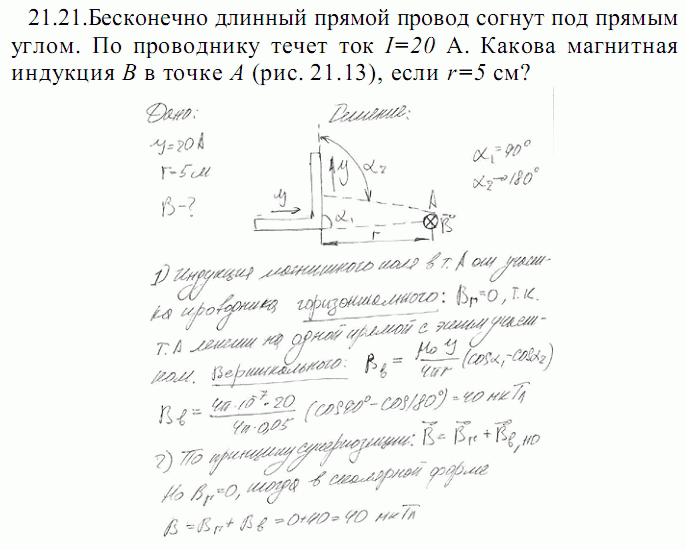 21.21.Бесконечно длинный прямой провод согнут под прямым
углом. По проводнику течет ток I=20 А. Какова магнитная
индукция B в точке A (рис. 21.13), если r=5 см?
Дано: Решение:
У=20А
r=5м
B-?
У α₂ У α₁ r A B⃗
α₁=90°
α₂→180°
1) Индукция магнитного поля в т. А от участ-
ка проводника горизонтального: Bг=0, т.к.
т. А лежит на одной прямой с этим участ-
ком. Вертикального: Bв = μ₀У/4πr (cosα₁-cosα₂)
Bв = 4π·10⁻⁷·20/4π·0,05 (cos90°-cos180°)=40 мкТл
2) По принципу суперпозиции: B⃗=B⃗г+B⃗в, но
но Bг=0, тогда в скалярной форме
B=Bг+Bв=0+40=40 мкТл